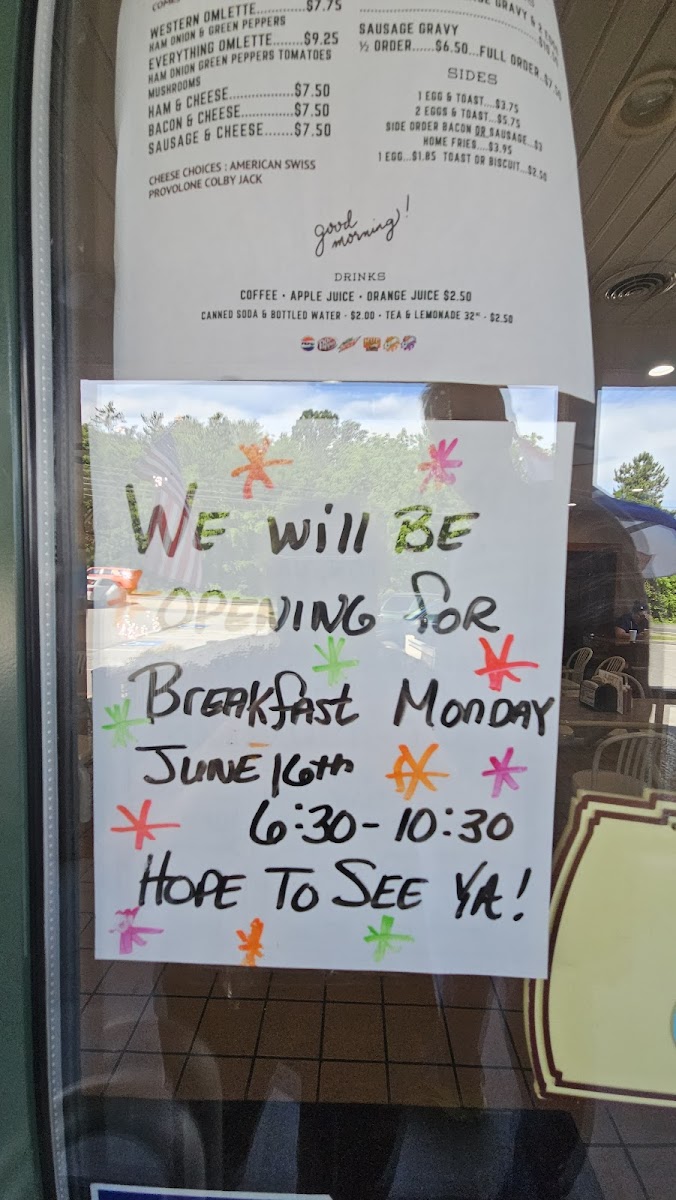 COMES
WESTERN OMLETTE..........$7.75
HAM ONION & GREEN PEPPERS
EVERYTHING OMLETTE.......$9.25
HAM ONION GREEN PEPPERS TOMATOES
MUSHROOMS
HAM & CHEESE.................$7.50
BACON & CHEESE..............$7.50
SAUSAGE & CHEESE.......$7.50
CHEESE CHOICES ; AMERICAN SWISS
PROVOLONE COLBY JACK
GRAVY & 2
SAUSAGE GRAVY
½ ORDER......$6.50...FULL ORDER..
SIDES
1 EGG & TOAST....$3.75
2 EGGS & TOAST...$5.75
SIDE ORDER BACON OR SAUSAGE...$3
HOME FRIES....$3.95
1 EGG...$1.85 TOAST OR BISCUIT...$2.50
good
morning!
DRINKS
COFFEE • APPLE JUICE • ORANGE JUICE $2.50
CANNED SODA & BOTTLED WATER - $2.00 • TEA & LEMONADE 32 - $2.50
WE Will BE
OPENING for
BREAKfAST MONDAY
JUNE 16th
6:30-10:30
HOPE TO SEE YA!